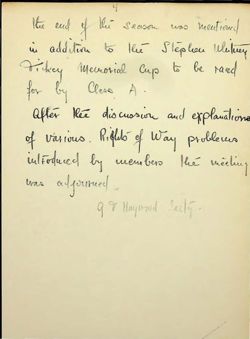 the end of the season was mentioned
in addition to the Stephen Whitney
Memorial Cup to be raced
for by Class A.
After the discussion and explanations
of various Rights of Way problems
introduced by members the meeting
was adjourned.
Hayward Secty.